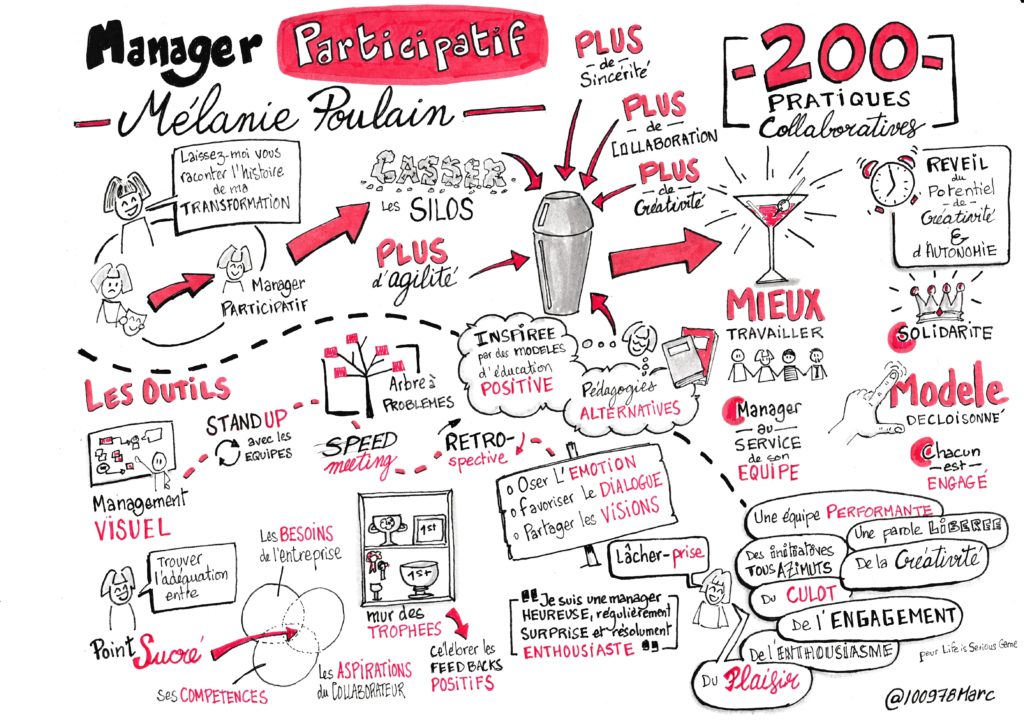 Manager Participatif
Mélanie Poulain
Laissez-moi vous
raconter l'histoire
de ma
TRANSFORMATION
Manager
PARTICIPATIF
CASSER
Les SILOS
PLUS
d'agilité
PLUS
de
Sincérité
PLUS
de
COLLABORATION
PLUS
de
Créativité
-200-
PRATIQUES
Collaboratives
REVEIL
du
Potentiel
de
Créativité
&
d'AUTONOMIE
MIEUX
TRAVAILLER
SOLIDARITE
Manager
au
SERVICE
de son
EQUIPE
Modele
DECLOISONNÉ
Chacun
est
ENGAGÉ
INSPIREE
par des MODELES
d'éducation
POSITIVE
Pédagogies
ALTERNATIVES
LES OUTILS
Management
VISUEL
STAND UP
avec les
EQUIPES
Arbre à
PROBLEMES
SPEED
meeting
RETRO-
spective
o Oser L'EMOTION
o Favoriser le DIALOGUE
o Partager les VISIONS
Trouver
l'adéquation
entre
Point Sucré
Les BESOINS
de l'entreprise
ses COMPETENCES
les ASPIRATIONS
du COLLABORATEUR
1st
1st
mur des
TROPHEES
celébrer les
FEEDBACKS
POSITIFS
Lâcher-prise
"Je suis une manager
HEUREUSE, regulièrement
SURPRISE et résolument
ENTHOUSIASTE"
Une équipe PERFORMANTE
Une parole LIBEREE
Des initiatives
TOUS AZIMUTS
De la Créativité
Du CULOT
De l'ENGAGEMENT
De l'ENTHOUSIASME
Du Plaisir
pour Life is Serious Game
@100978Marc